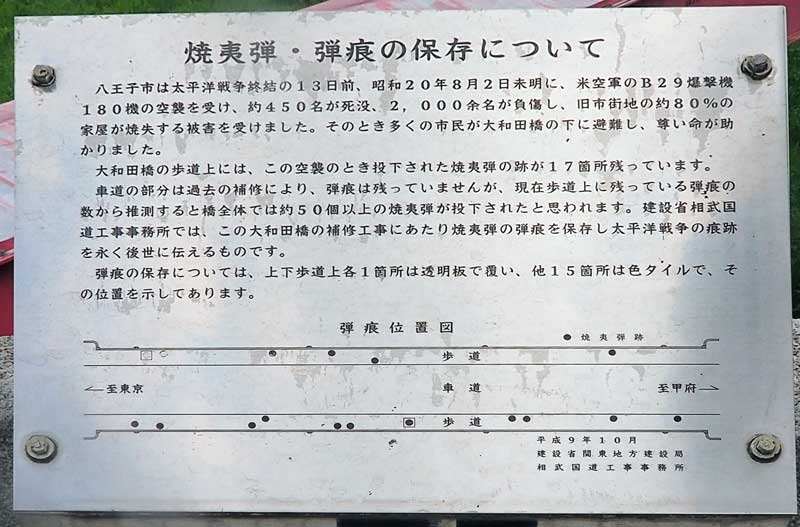 焼夷弾・弾痕の保存について
八王子市は太平洋戦争終結の13日前、昭和20年8月2日未明に、米空軍のB29爆撃機
180機の空襲を受け、約450名が死没、2,000余名が負傷し、旧市街地の約80%の
家屋が焼失する被害を受けました。そのとき多くの市民が大和田橋の下に避難し、尊い命が助
かりました。
大和田橋の歩道上には、この空襲のとき投下された焼夷弾の跡が17箇所残っています。
車道の部分は過去の補修により、弾痕は残っていませんが、現在歩道上に残っている弾痕の
数から推測すると橋全体では約50個以上の焼夷弾が投下されたと思われます。建設省相武国
道工事事務所では、この大和田橋の補修工事にあたり焼夷弾の弾痕を保存し太平洋戦争の痕跡
を永く後世に伝えるものです。
弾痕の保存については、上下歩道上各1箇所は透明板で覆い、他15箇所は色タイルで、そ
の位置を示してあります。
弾痕位置図
●焼夷弾跡
歩道
←至東京 車道 至甲府→
歩道
平成9年10月
建設省関東地方建設局
相武国道工事事務所